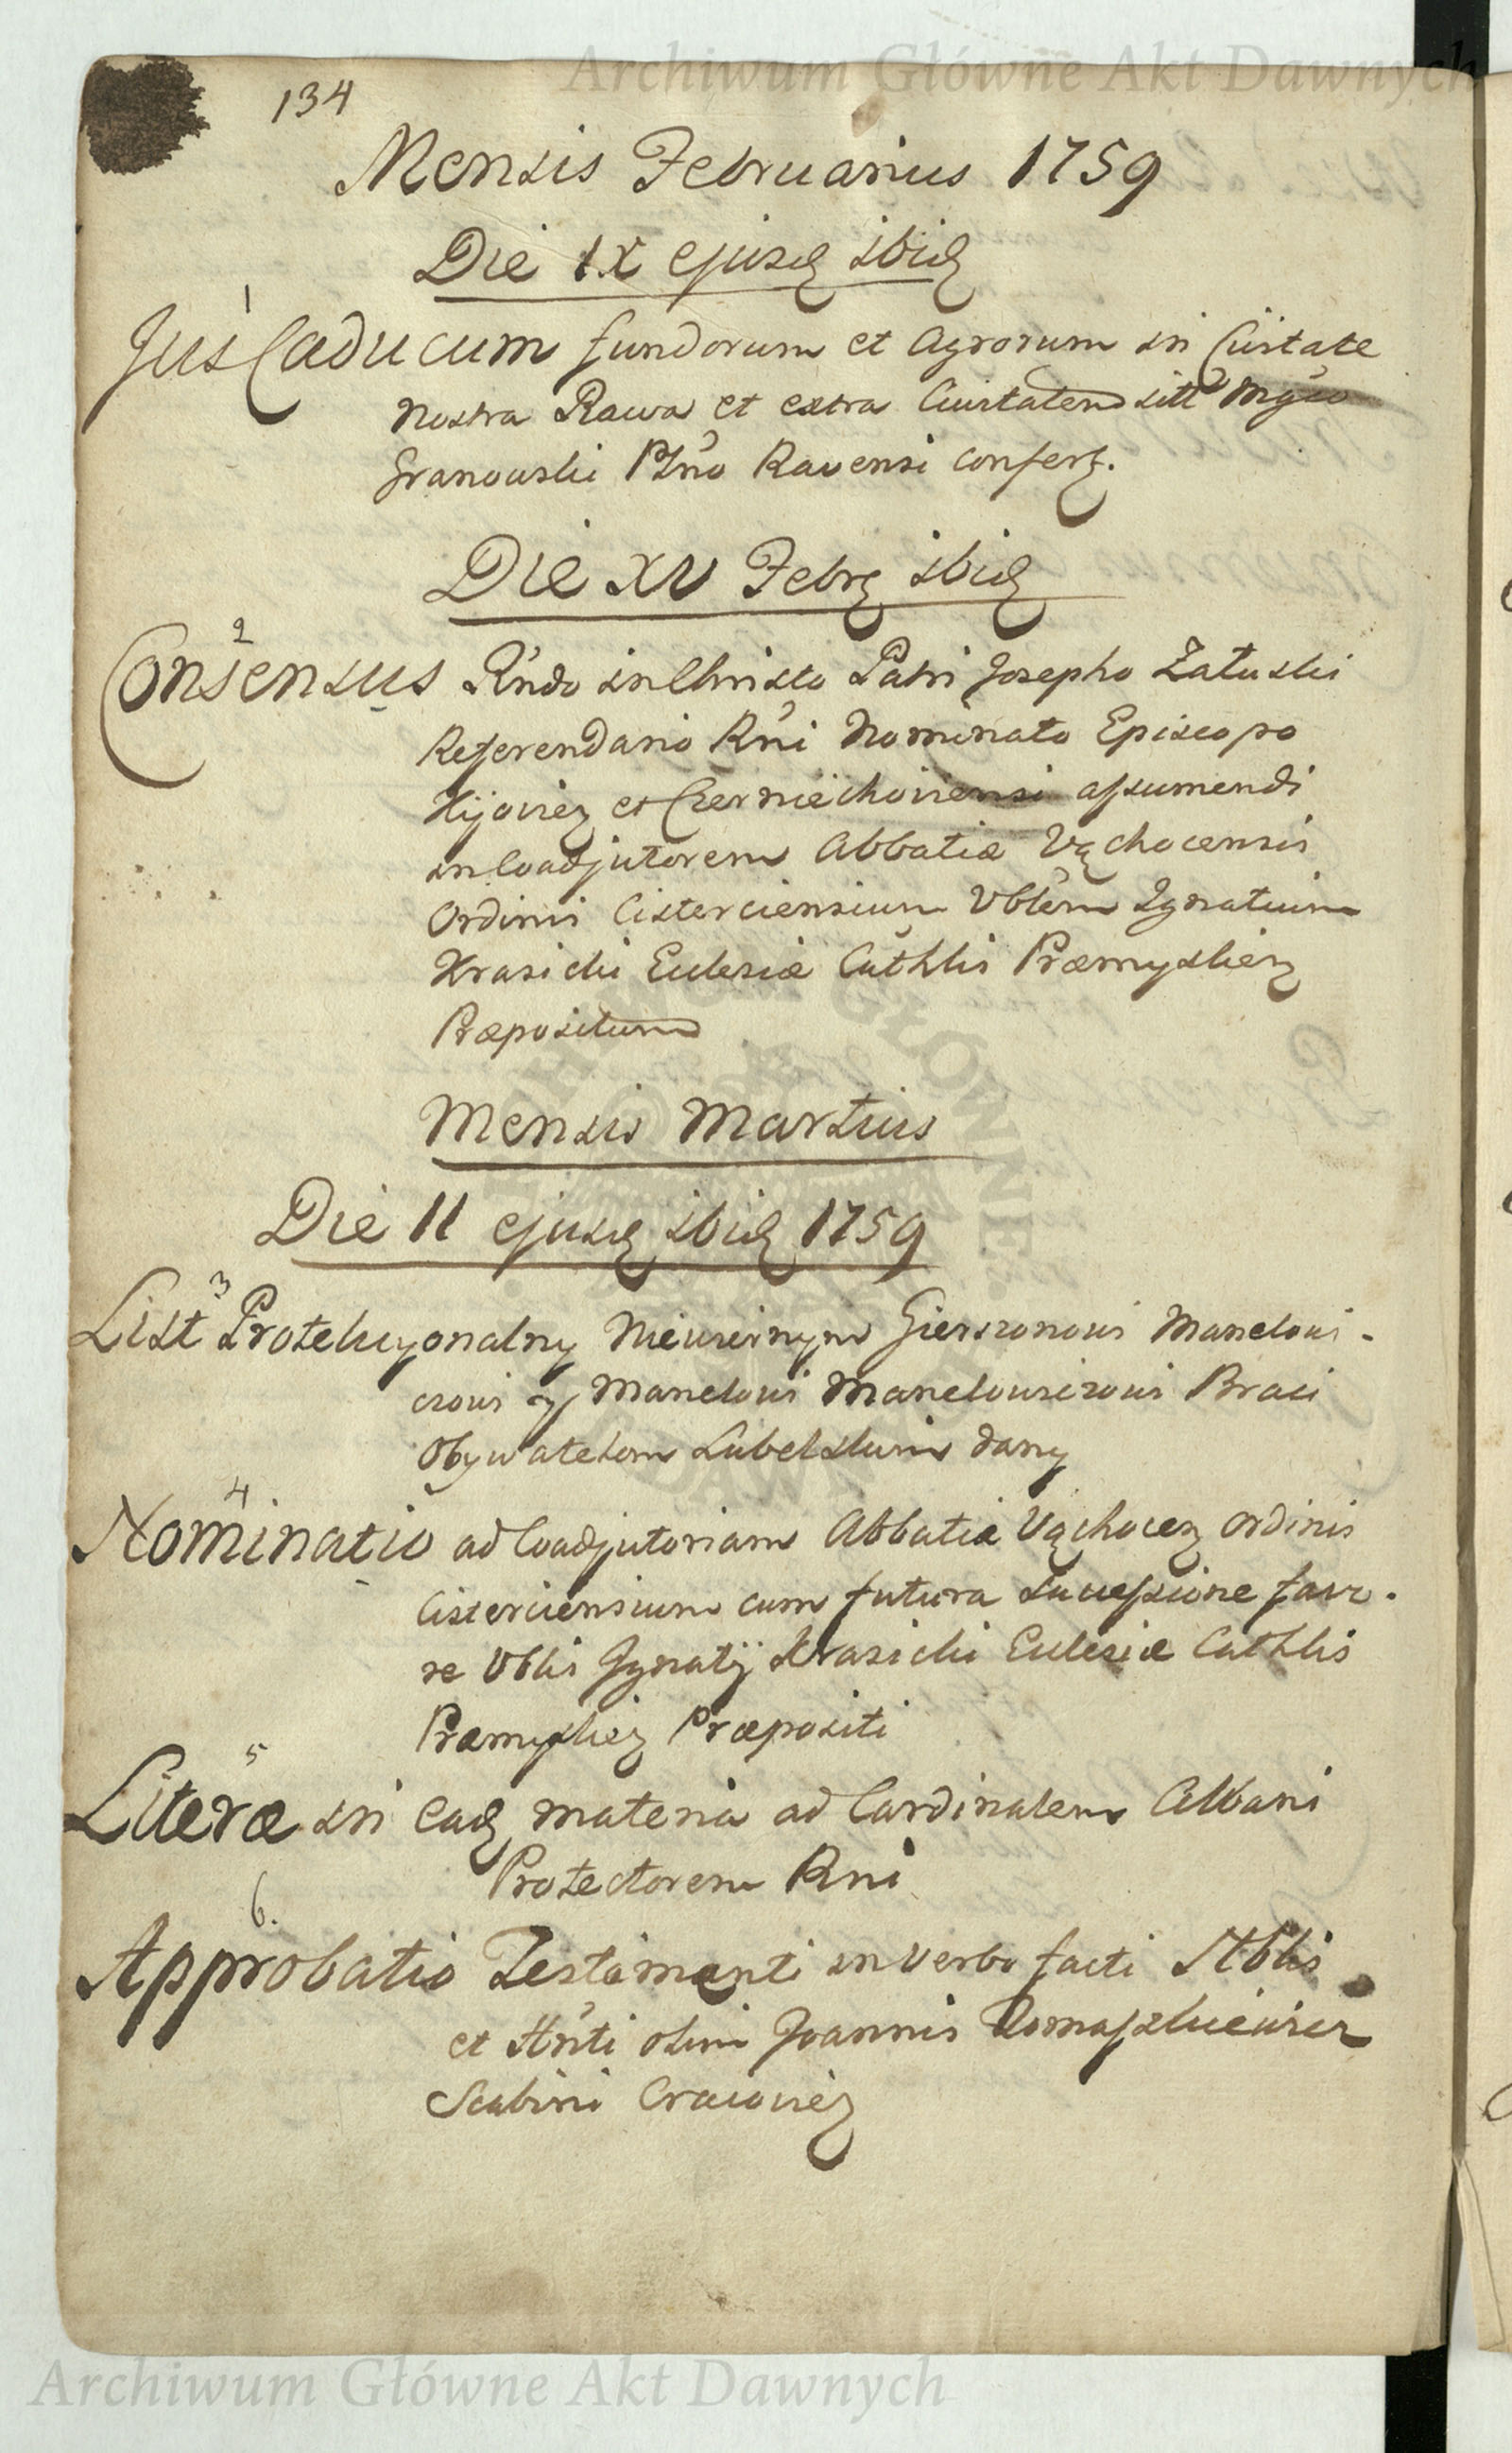 Archiwum Główne Akt Dawnych
134
Mensis Februarius 1759
Die IX ejusd ibid
1
Jus Caducum fundorum et Agrorum in Civitate
nostra Rawa et extra Civitatem sitt Mgco
Granowski Pźno Ravensi confert.
Die XV Febr ibid
2
Consensus Rndo in Christo Patri Josepho Załuski
Referendario Rni Nominato Episcopo
Kijovien et Czerniechoviensi assumendi
in Coadjutorem Abbatiæ Vąchocensis
Ordinis Cisterciensium Vblem Ignatium
Krasicki Ecclesiæ Cathlis Præmyslien
Præpositum
Mensis Martius
Die II ejusd ibid 1759
3
List Protekcyonalny Niewiernym Gierszonowi Manelowi-
czowi y Manelowi Manelowiczowi Braci
Obywatelom Lubelskim dany
4
Nominatio ad Coadjutoriam Abbatiæ Vąchocen Ordinis
Cisterciensium cum futura Successione favo-
re Vblis Ignatij Krasicki Ecclesiæ Cathlis
Præmyslien Præpositi
5
Literæ in ead materia ad Cardinalem Albani
Protectorem Rni
6.
Approbatio Testamenti in verbo facti Ntblis
et Hnti olim Joannis Romaszkiewicz
Scabini Cracovien
Archiwum Główne Akt Dawnych